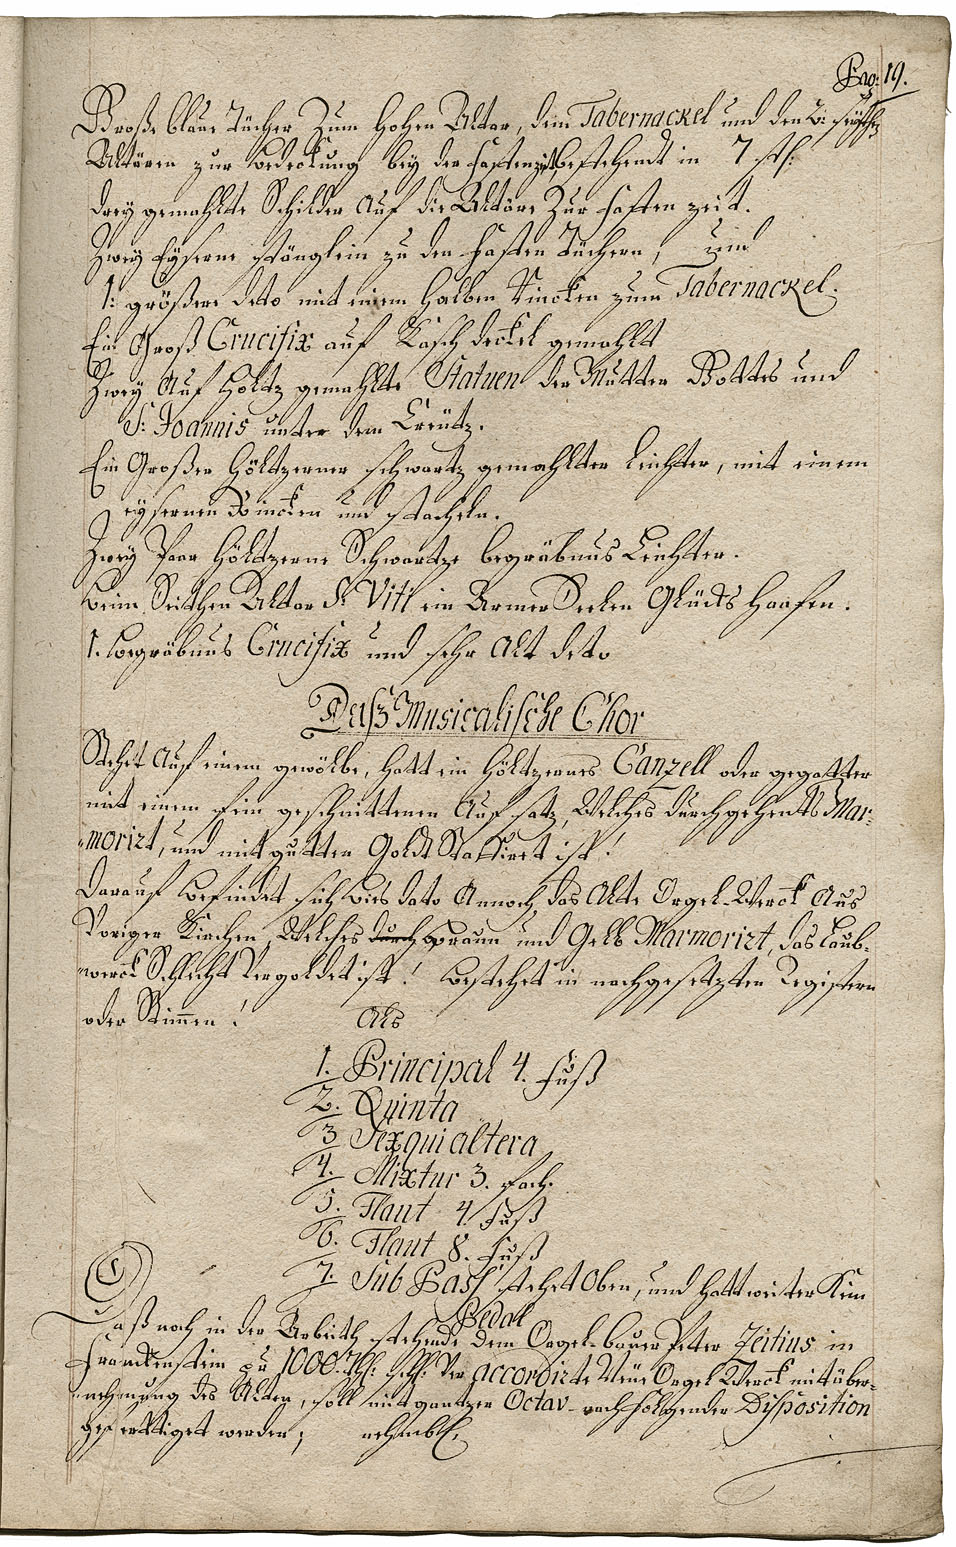 Pag: 19.
Große blaue Tücher Zum Hohen Altar, dem Tabernackel und den 2: seythen
Altären zur bedeckung bey der fasten zeit bestehendt in 7 stk:
Drey gemahlte Schilder Auf die Altäre Zur fasten zeit.
Zwey Eyserne stänglein zu den fasten Tüchern, und
1: größere deto mit einem halben Zincken zum Tabernackel.
Ein Groß Crucifix auf Kasch deckel gemahlt
Zwey Auf Holtz gemahlte Statuen der Mutter Gottes und
S: Joannis unter dem Creütz.
Ein Großer Höltzerner schwartz gemahlter Leichter, mit einem
eysernen Zincken und stacheln.
Zwey Paar Höltzerne Schwartze begräbnus Leichter.
beim Seithen Altar S: Viti ein Armer Seelen Glücks Haafen.
1. begräbnus Crucifix und sehr Alt deto
Daß Musicalische Chor
Stehet Auf einem gewölbe, hatt ein Höltzernes Canzell oder gegatter
mit einem fein geschnittenen Aufsatz, Welches durchgehents Mar-
morirt, und mit gutten Goldt Staffiret ist!
Darauf befindet sich bies dato Annoch das Alte Orgel-Werck Aus
Voriger Kirchen, Welches durch braun und Gelb Marmorirt, das Laub-
werck Schlecht Vergoldet ist! bestehet in nachgesetzten Registern
oder Stim̄en! Als
1. Principal 4. Fuß
2. Quinta
3 Sexquialtera
4. Mixtur 3. fach.
5. Flaut 4. Fuß
6. Flaut 8. Fuß
7. Sub Bass stehet Oben, und hatt weiter Kein
Pedal
Daß noch in der Arbeith stehende dem Orgel-bauer Peter Zeitius in
Franckenstein zu 1000 Thl: schl: Ver accordirte Neüe Orgel Werck mit über-
nehmung des Alten, soll mit gantzer Octav nachfolgender Disposition
gefertiget werden; nehmbl.